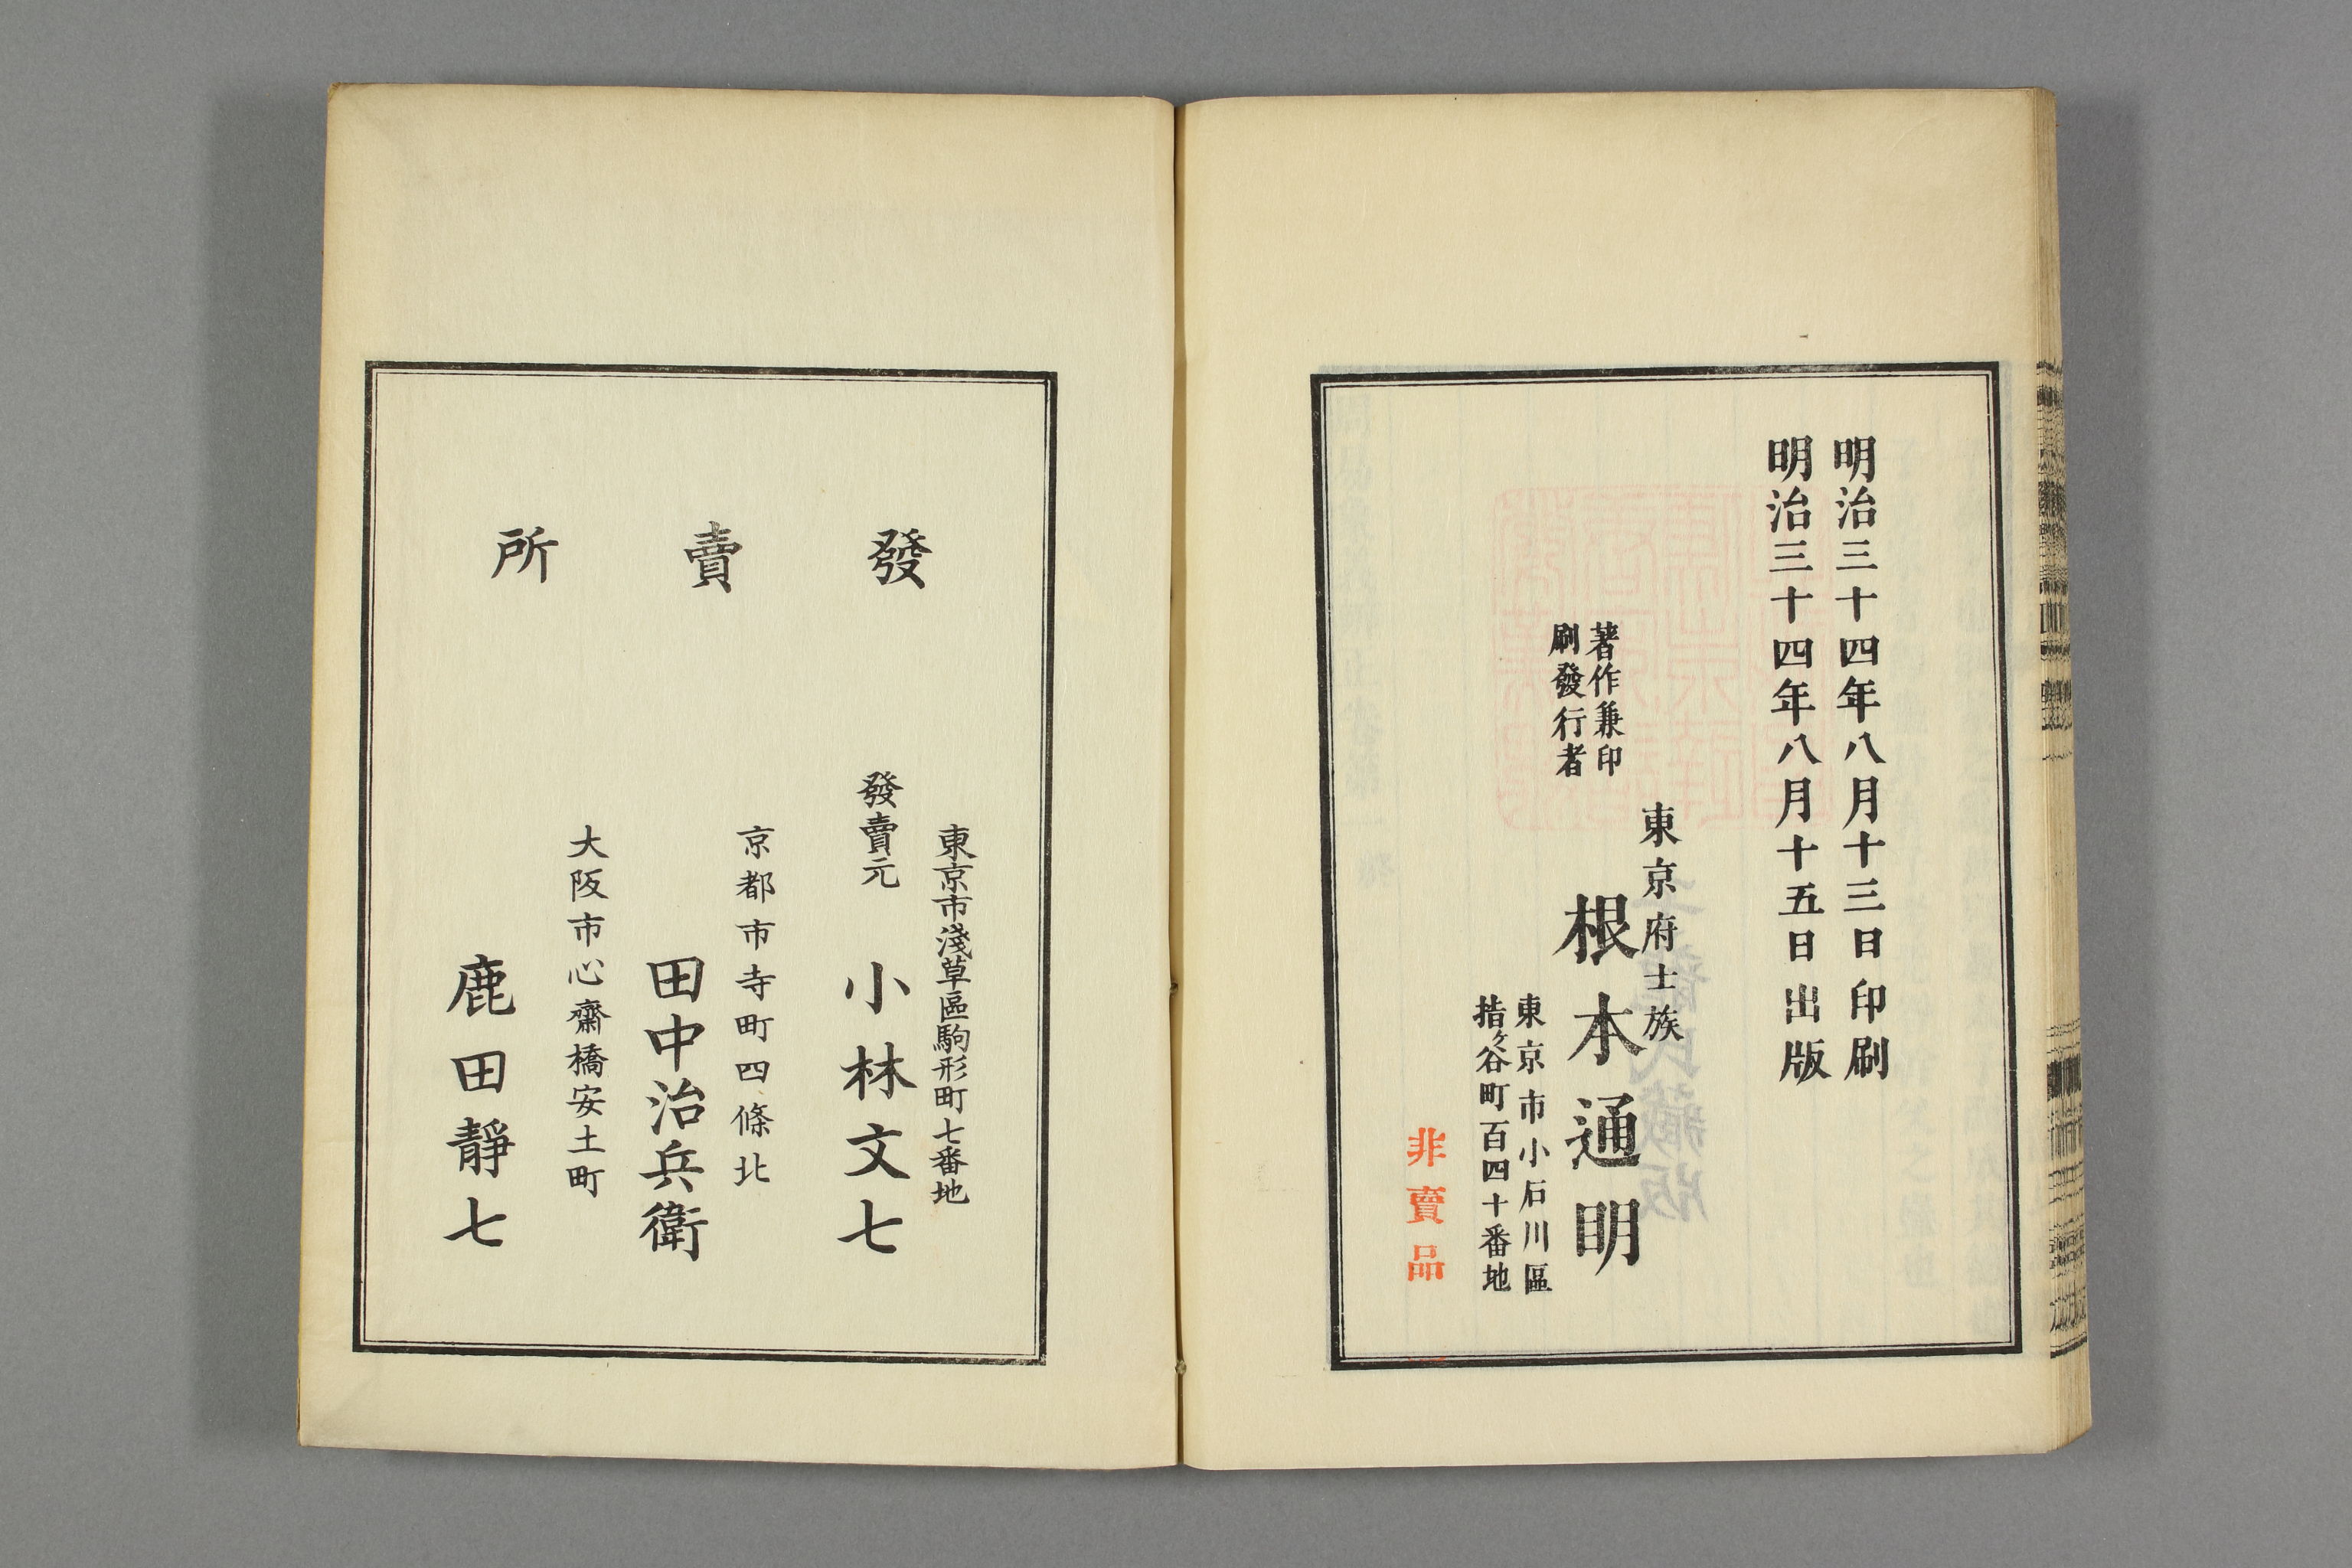 明治三十四年八月十三日印刷
明治三十四年八月十五日出版
東京府士族
著作兼印
刷發行者
根本通明
東京市小石川區
指ケ谷町百四十番地
非賣品
發賣所
東京市淺草區駒形町七番地
發賣元 小林文七
京都市寺町四條北
田中治兵衛
大阪市心齋橋安土町
鹿田靜七